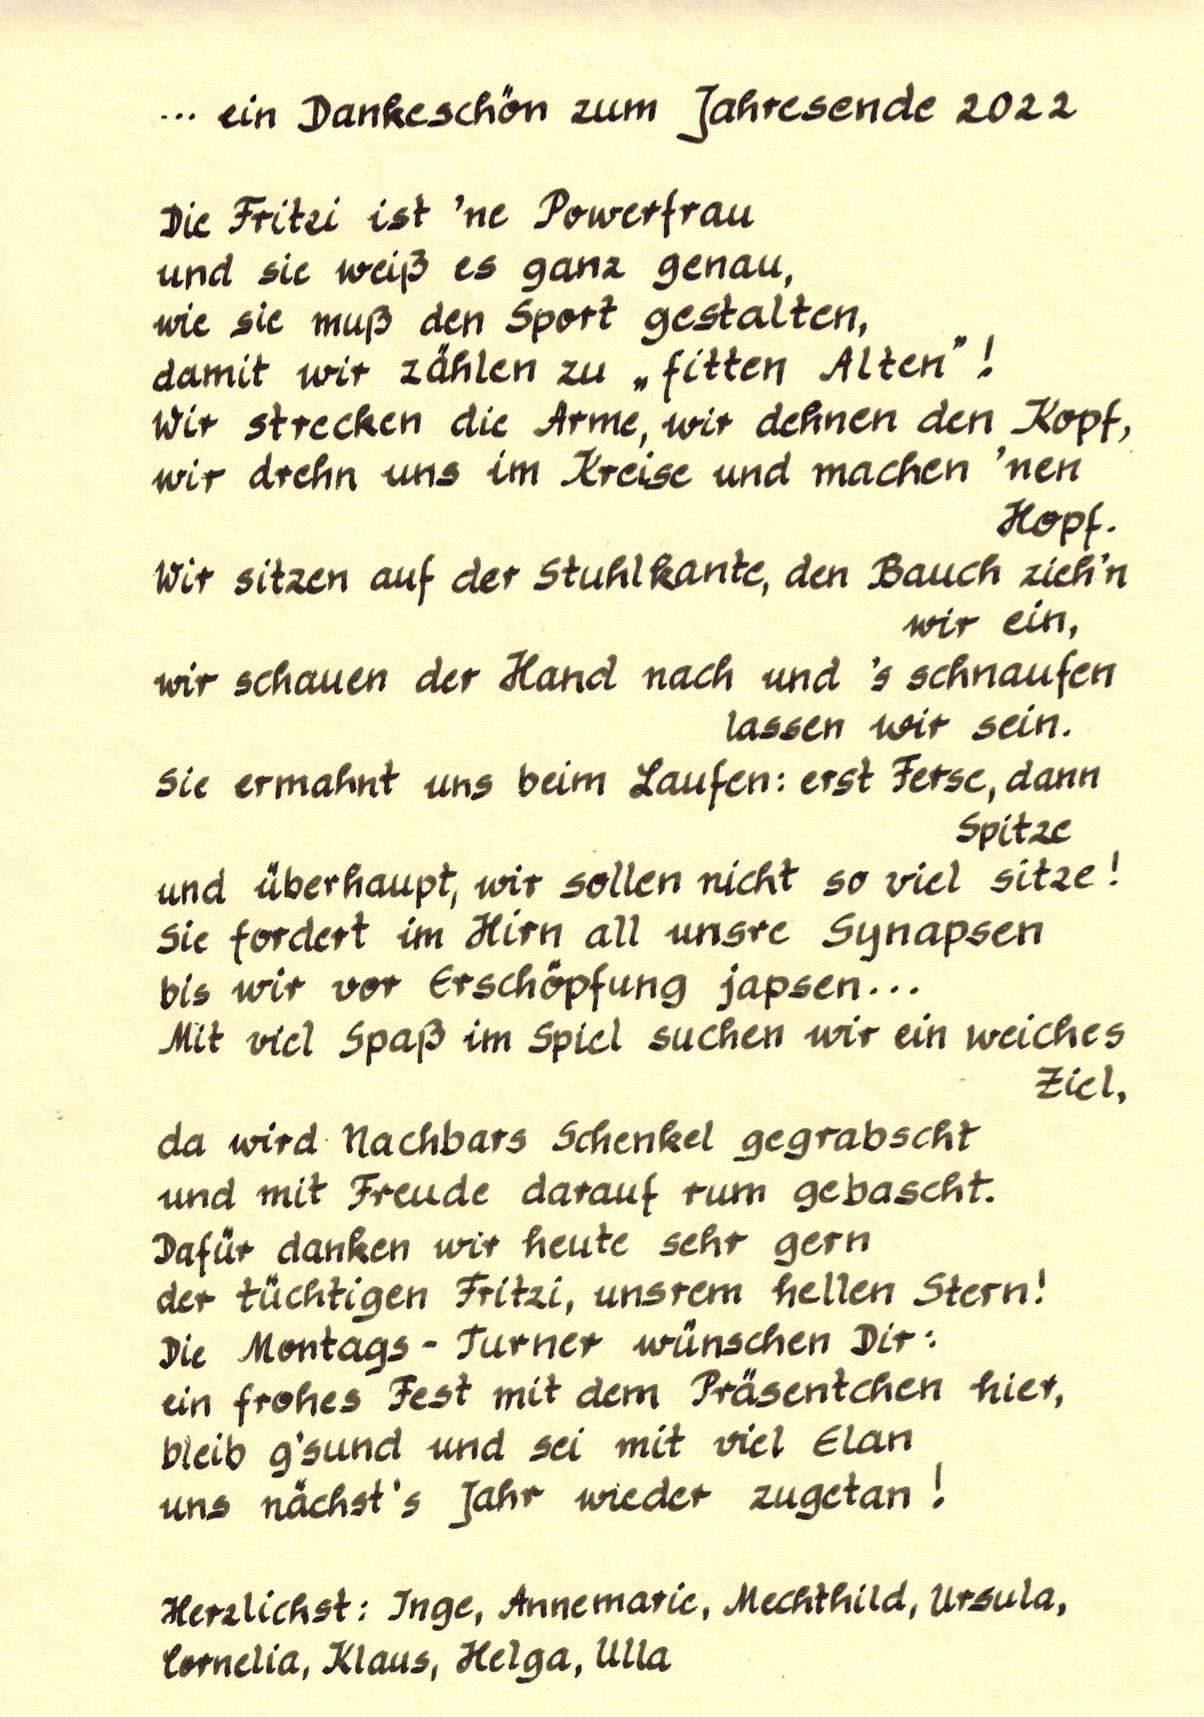 ... ein Dankeschön zum Jahresende 2022
Die Fritzi ist 'ne Powerfrau
und sie weiß es ganz genau,
wie sie muß den Sport gestalten,
damit wir zählen zu „fitten Alten"!
Wir strecken die Arme, wir dehnen den Kopf,
wir drehn uns im Kreise und machen 'nen
Hopf.
Wir sitzen auf der Stuhlkante, den Bauch zieh'n
wir ein,
wir schauen der Hand nach und 's schnaufen
lassen wir sein.
Sie ermahnt uns beim Laufen: erst Ferse, dann
Spitze
und überhaupt, wir sollen nicht so viel sitze!
Sie fordert im Hirn all unsre Synapsen
bis wir vor Erschöpfung japsen...
Mit viel Spaß im Spiel suchen wir ein weiches
Ziel,
da wird Nachbars Schenkel gegrabscht
und mit Freude darauf rum gebascht.
Dafür danken wir heute sehr gern
der tüchtigen Fritzi, unsrem hellen Stern!
Die Montags-Turner wünschen Dir:
ein frohes Fest mit dem Präsentchen hier,
bleib g'sund und sei mit viel Elan
uns nächst's Jahr wieder zugetan!
Herzlichst: Inge, Annemarie, Mechthild, Ursula,
Cornelia, Klaus, Helga, Ulla